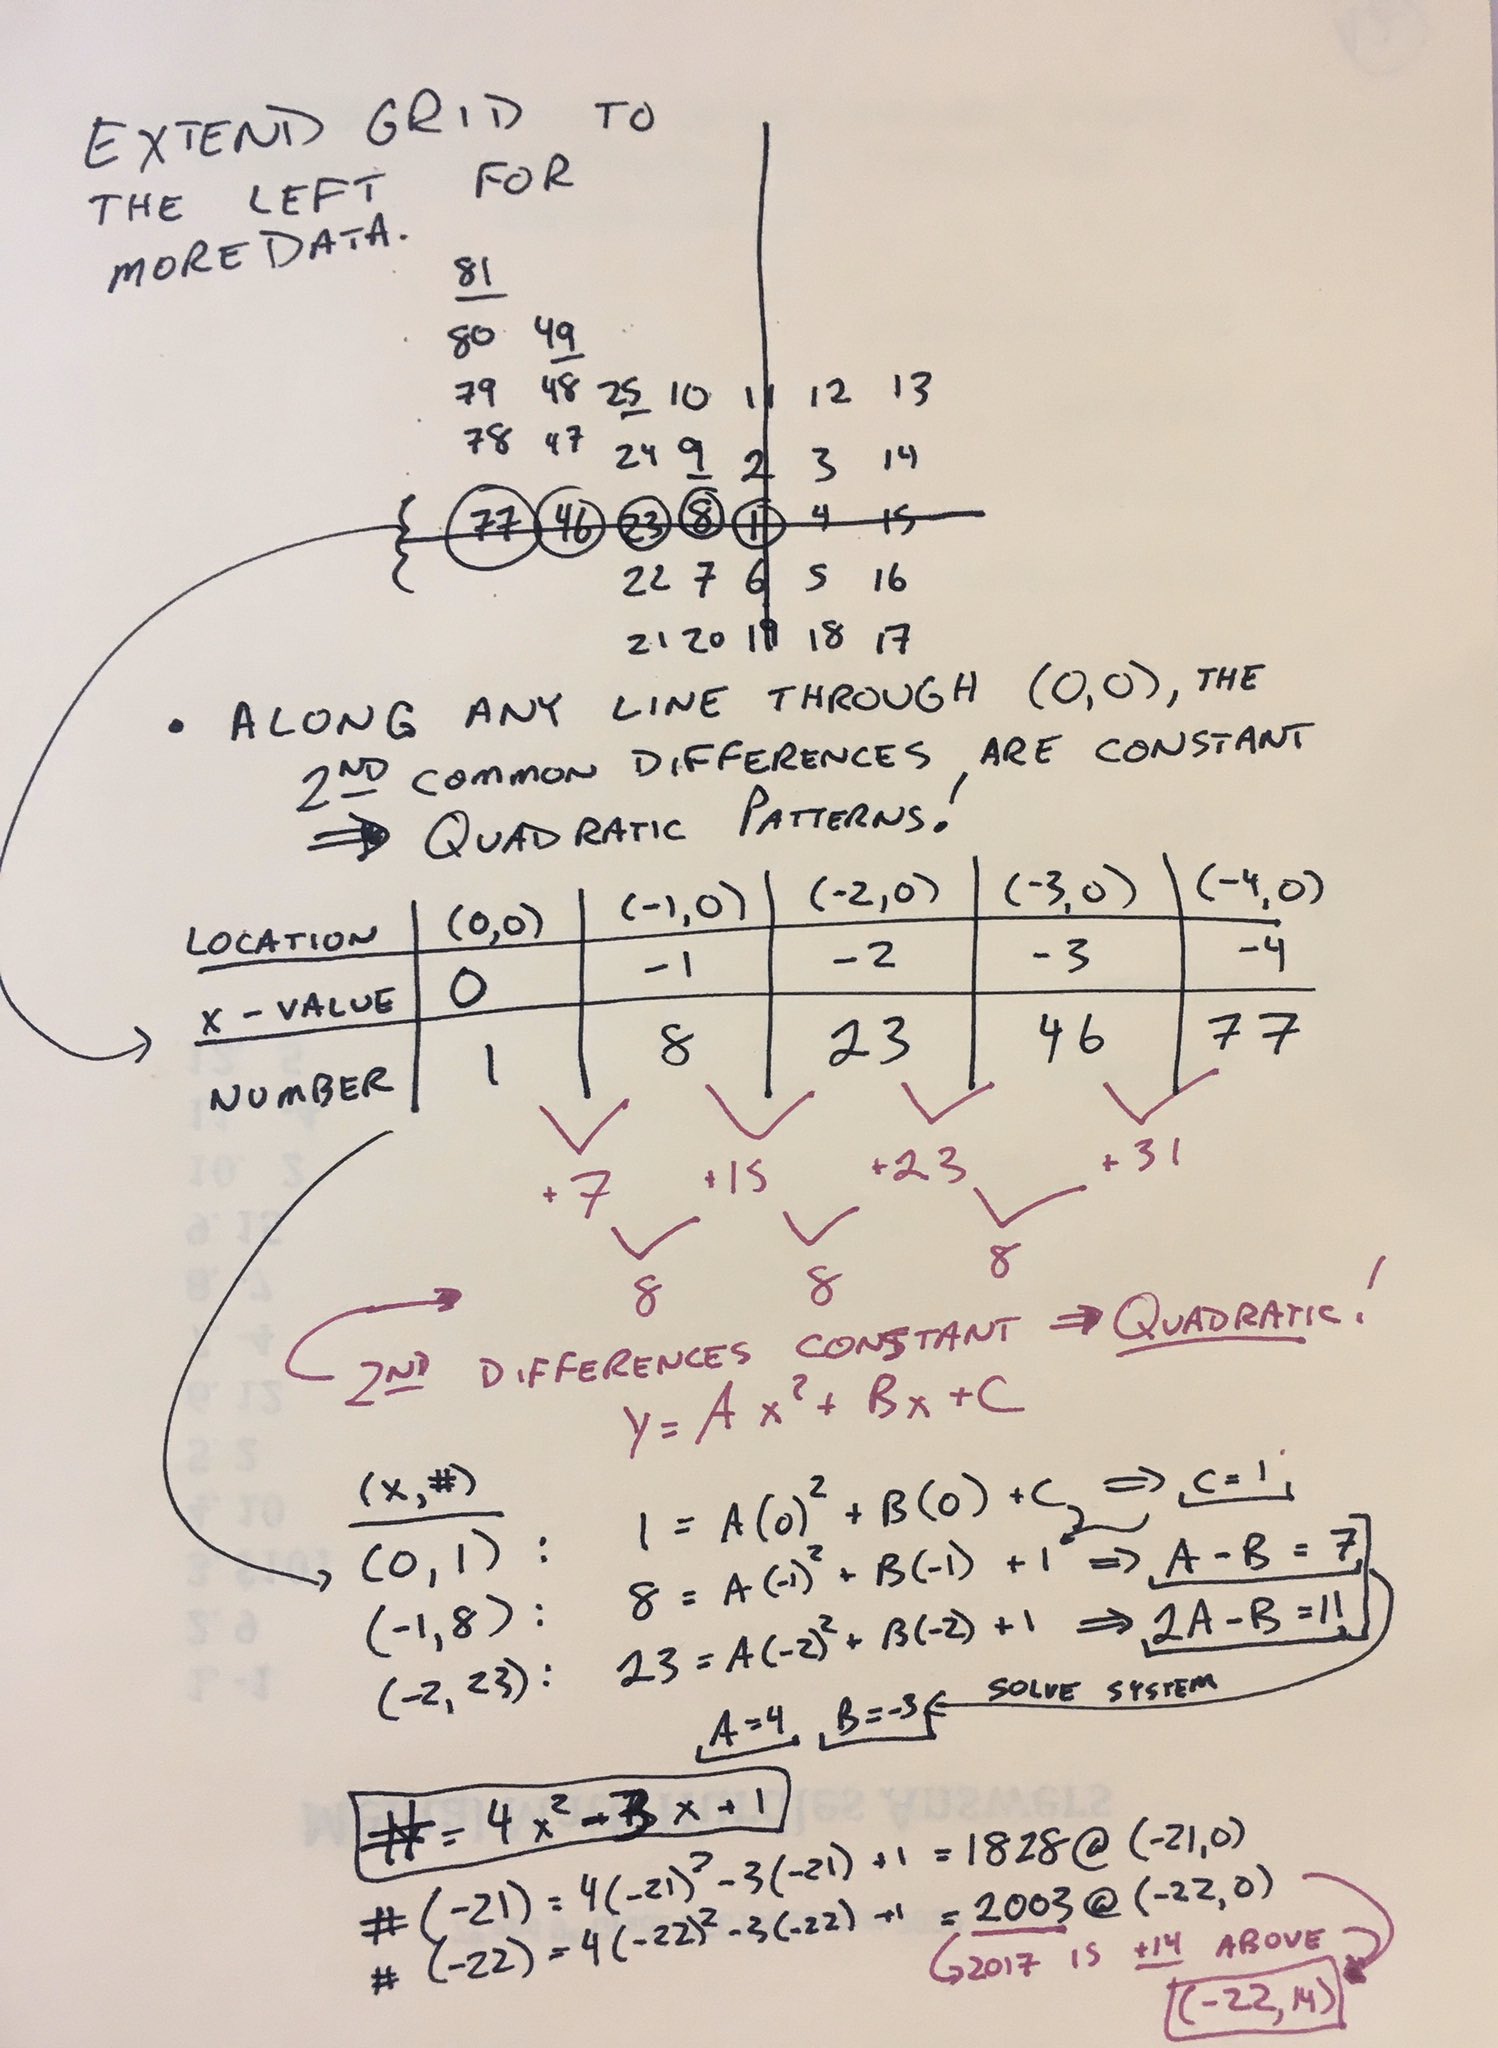 EXTEND GRID TO
THE LEFT FOR
MORE DATA.
81
80 49
79 48 25 10 11 12 13
78 47 24 9 2 3 14
77 46 23 8 1 4 15
22 7 6 5 16
21 20 19 18 17
• ALONG ANY LINE THROUGH (0,0), THE
2ND COMMON DIFFERENCES ARE CONSTANT
⇒ QUADRATIC PATTERNS!
LOCATION (0,0) (-1,0) (-2,0) (-3,0) (-4,0)
X-VALUE 0 -1 -2 -3 -4
NUMBER 1 8 23 46 77
+7 +15 +23 +31
8 8 8
2ND DIFFERENCES CONSTANT ⇒ QUADRATIC!
y = Ax² + Bx + C
(x,#)
(0,1): 1 = A(0)² + B(0) + C ⇒ C=1
(-1,8): 8 = A(-1)² + B(-1) + 1 ⇒ A-B=7
(-2,23): 23 = A(-2)² + B(-2) + 1 ⇒ 2A-B=11
A=4 B=-3 SOLVE SYSTEM
# = 4x² - 3x + 1
#(-21) = 4(-21)² - 3(-21) + 1 = 1828 @ (-21,0)
#(-22) = 4(-22)² - 3(-22) + 1 = 2003 @ (-22,0)
2017 IS +14 ABOVE
(-22,14)